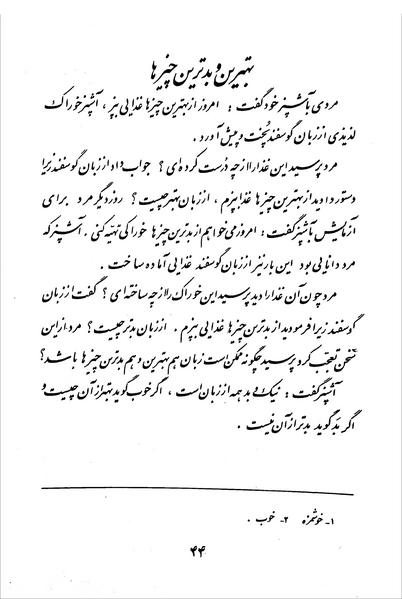 بهترین و بدترین چیزها
مردی باآشپز خود گفت : امروز از بهترین چیزها غذایی بپز ، آشپز خوراک
لذیذی از زبان گوسفند پخت و پیش آورد .
مرد پرسید این غذا را از چه درست کرده‌ای ؟ جواب داد از زبان گوسفند زیرا
دستور دادید از بهترین چیزها غذا بپزم ، از زبان بهتر چیست ؟ روز دیگر مرد برای
آزمایش باآشپز گفت : امروز می‌خواهم از بدترین چیزها خوراکی تهیّه کنی . آشپز که
مرد دانایی بود این بار نیز از زبان گوسفند غذایی آماده ساخت .
مرد چون آن غذا را دید پرسید این خوراک را از چه ساخته‌ای ؟ گفت از زبان
گوسفند زیرا فرمودید از بدترین چیزها غذایی بپزم . از زبان بدتر چیست ؟ مرد از این
سخن تعجّب کرد پرسید چگونه ممکن است زبان هم بهترین و هم بدترین چیزها باشد ؟
آشپز گفت : نیک و بد همه از زبان است ، اگر خوب گوید بهتر از آن چیست و
اگر بد گوید بدتر از آن نیست .
۱- خوشمزه ۲- خوب .
۴۴